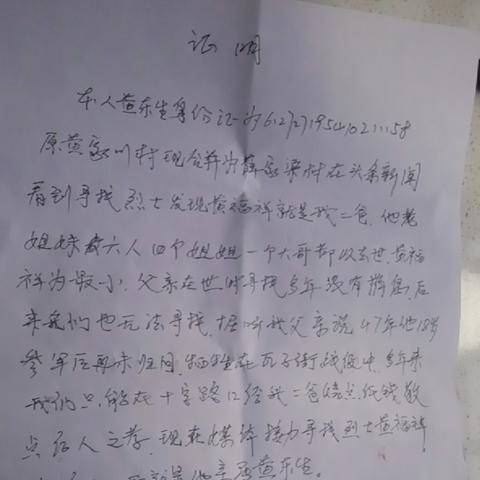 证明
本人黄东生身份证为612727195410211158
原黄家川村现合并为薛家梁村在头条新闻
看到寻找烈士发现黄福祥就是我二爸.他老
姐妹六人四个姐姐一个大哥都以去世.黄福
祥为最小.父亲在世时寻找多年没有音信后
来我们也无法寻找.据听我父亲说47年他18岁
参军后再未归回.牺牲在瓦子街战役中.多年来
我们只能在十字路口给我二爸烧点纸钱敬
点后人之孝.现在媒体接力寻找烈士黄福祥
就是他亲属黄东生。